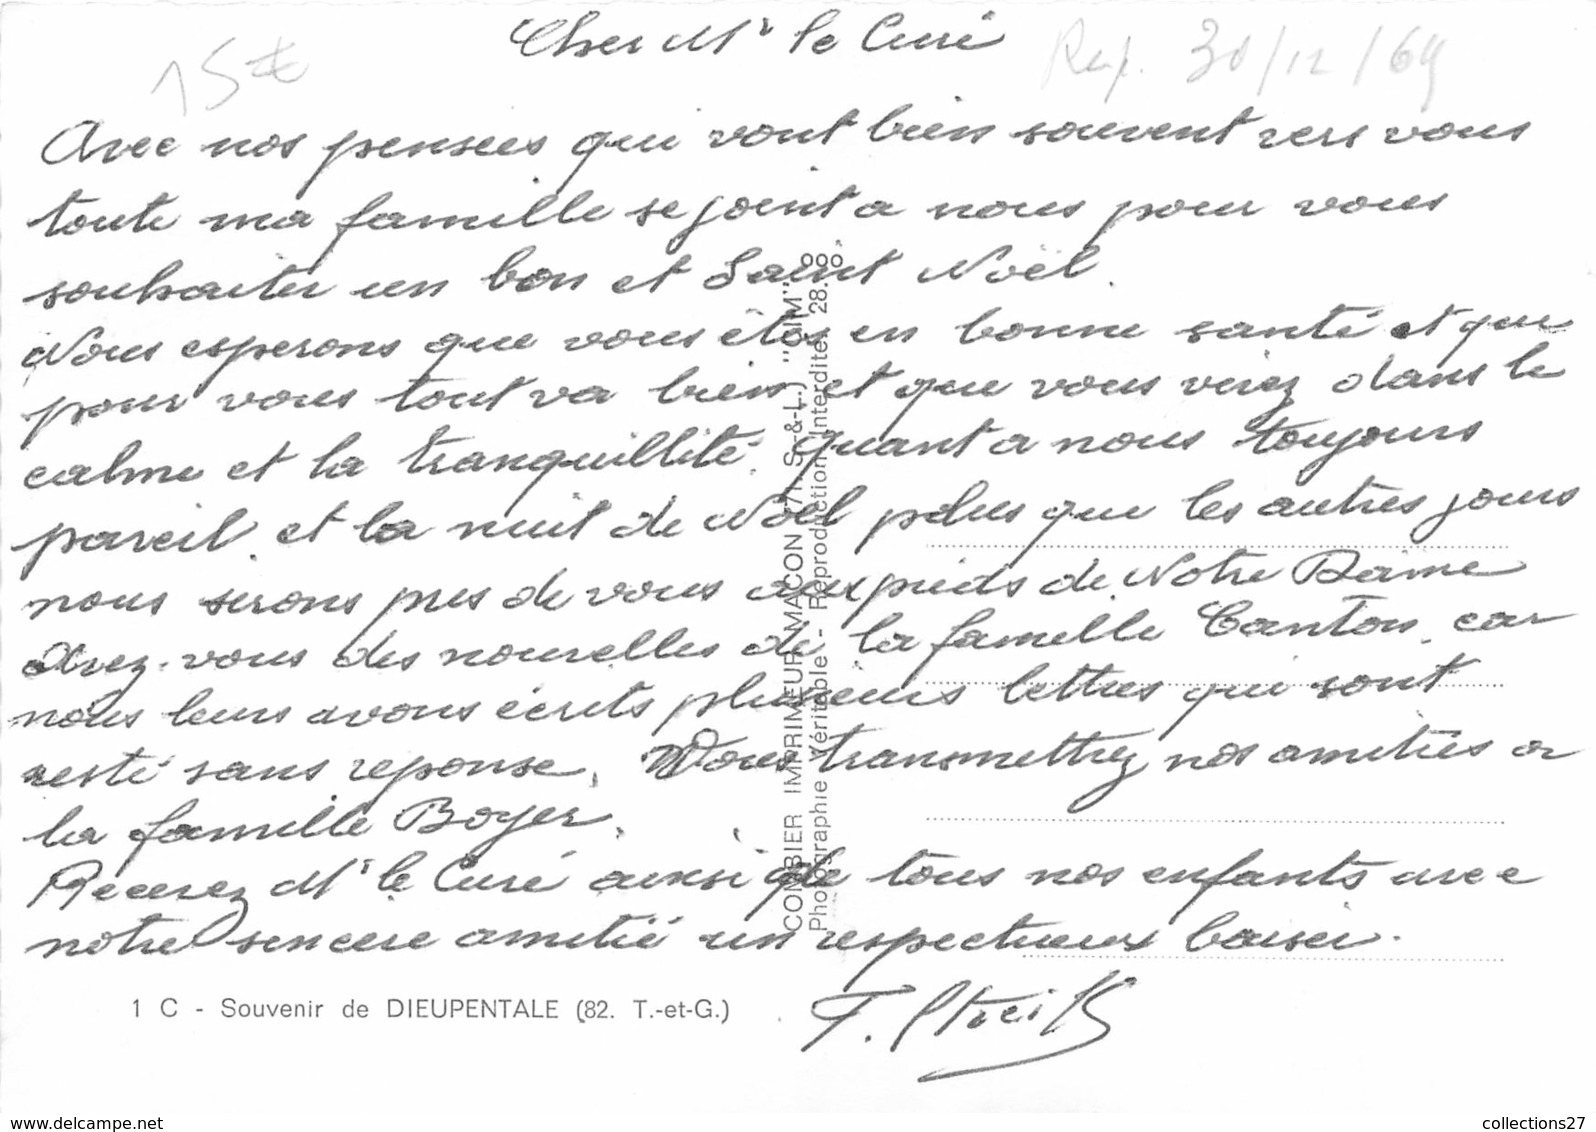 Cher Mr le Curé
15€
Rep. 30/12/69
Avec nos pensees qui vont bien souvent vers vous
toute ma famille se joint a nous pour vous
souhaiter un bon et Saint Noël.
Nous esperons que vous êtes en bonne santé et que
pour vous tout va bien et que vous vivez dans le
calme et la tranquillité. quant a nous toujours
pareil. et la nuit de Noël plus que les autres jours
nous serons pres de vous aux pieds de Notre Dame
Avez-vous des nouvelles de la famille Canton. car
nous leurs avons écrits plusieurs lettres qui sont
resté sans reponse. Vous transmettrez nos amitiés a
la famille Boyer.
Recevez Mr le Curé ainsi que tous nos enfants avec
notre sincere amitié un respectueux baiser.
COMBIER IMPRIMEUR MACON (71 S.-&-L.) "CIM"
Photographie Véritable - Reproduction Interdite. 28.
1 C - Souvenir de DIEUPENTALE (82. T.-et-G.)
www.delcampe.net
collections27